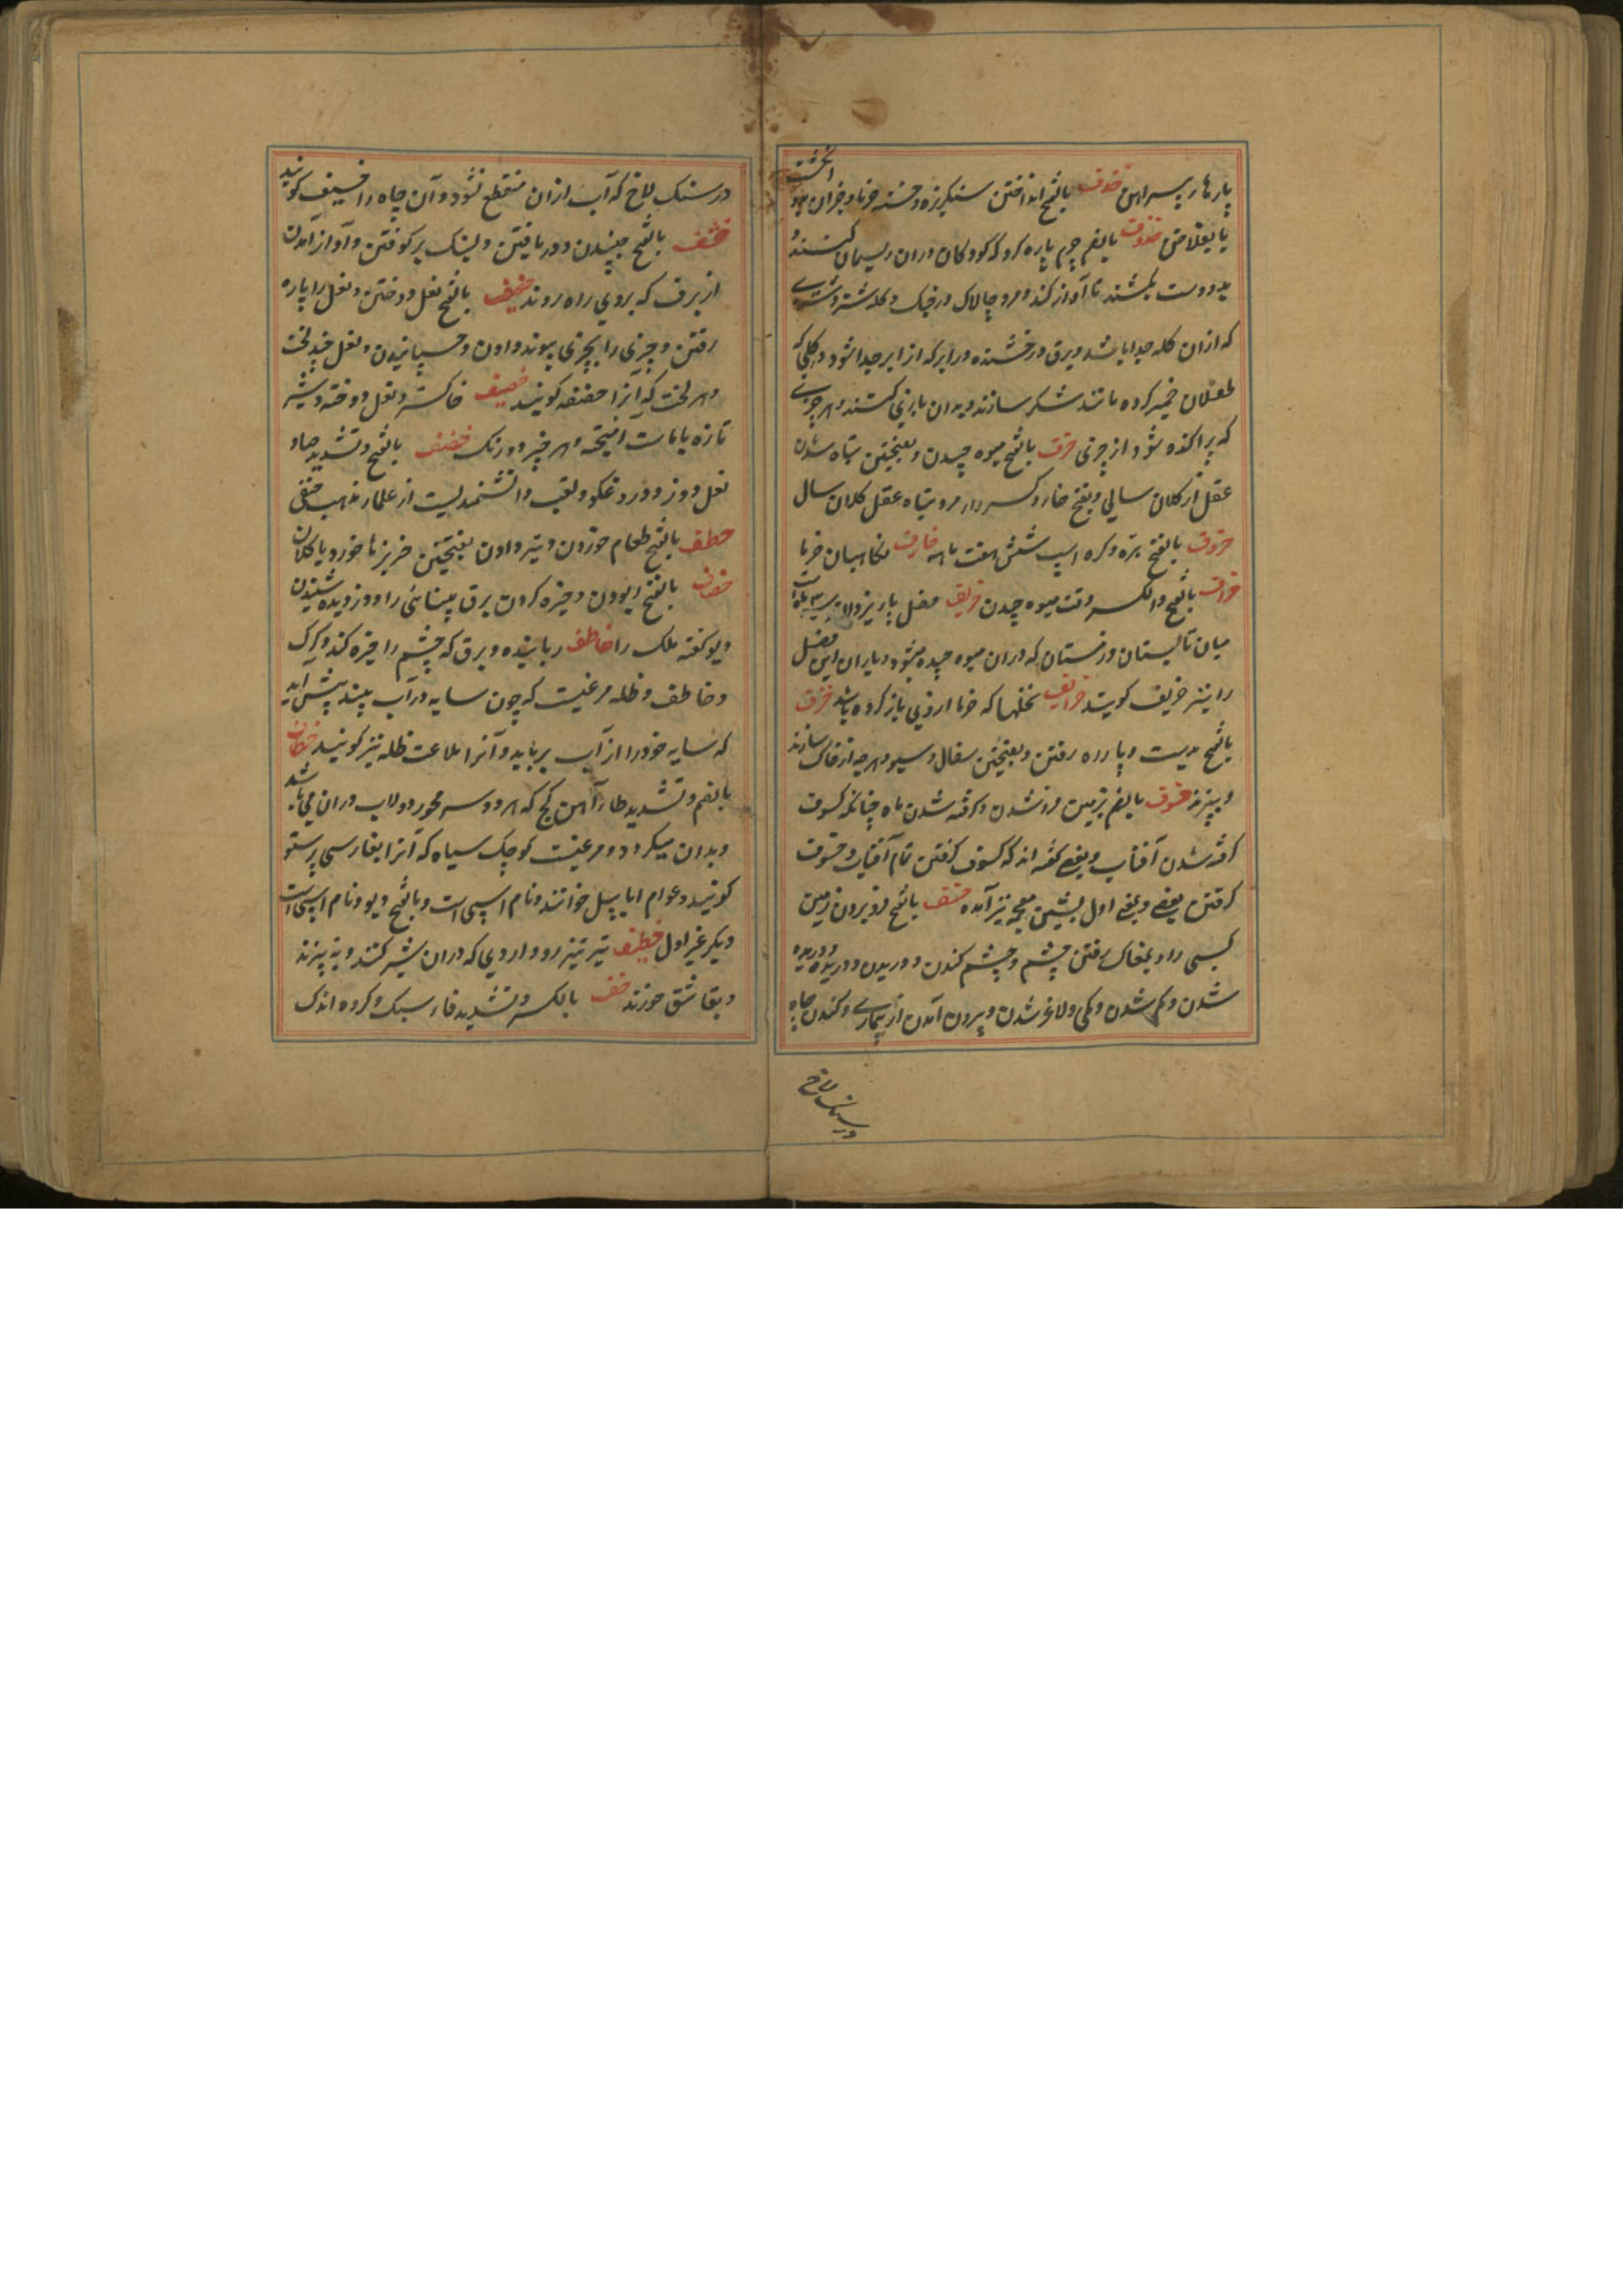 پارهار پیراهن خذف بالفتح انداختن سنکریزه و خسته خرما و جز آن بدو انگشت
یا بفلاخن خذروف بالضم چرم پاره کرد که کودکان دران ریسمان کنند و
بدو دست بکشند تا آواز کند و مرد چالاک در جنک و کله شتر و شتری
که ازان کله جدا باشد و برق درخشنده در ابر که از ابر جدا شود و کلی که
طفلان خمیر کرده مانند شکر سازند و بدان بازی کنند و هر چیزی
که پراکنده شود از چیزی خرف بالفتح میوه چیدن و بفتحتین تباه شدن
عقل از کلان سالی و بفتح خا و کسر را مرد تباه عقل کلان سال
خروف بالفتح بره و کره اسپ شش هفت ماهه خارف نکاهبان خرما
خراف بالفتح والکسر وقت میوه چیدن خریف فصل پاییز
میان تابستان و زمستان که دران میوه چیده میشود و باران این فصل
را نیز خریف کویند خرایف نخلها که خرما ازوی باز کرده باشد خزف
بالفتح بدست و پا راه رفتن و بفتحتین سفال و سبو و هر چه از خاک سازند
و بپزند خسوف بالضم بزمین فرو شدن و کرفته شدن ماه چنانکه کسوف
کرفته شدن آفتاب و بعضی کفته اند که کسوف کرفتن تمام آفتاب و خسوف
کرفتن بعضی و بمعنی اول بشین معجمه نیز آمده خسف بالفتح فرو بردن زمین
کسی را و بمغاک رفتن چشم و چشم کندن و دریدن و دریده
شدن و کم شدن و کمی و لاغر شدن و بیرون آمدن از بیماری و کندن چاه
در سنک لاخ
در سنک لاخ که آب ازان منقطع نشود و آن چاه را خسیف کویند
خشف بالفتح جنبیدن و دریافتن و بسنک سر کوفتن و آواز آمدن
از برف که بروی راه روند خصف بالفتح نعل دوختن و نعل را پاره
رفتن و چیزی را بچیزی پیوند دادن و چسپانیدن و نعل چند لخت
و هر لخت که آنرا خصفه کویند خصیف خاکستر و نعل دوخته و شیر
تازه با ماست آمیخته و هر چیز دو رنک خصاف بالفتح و تشدید صاد
نعل دوز و دروغکو و لقب دانشمندیست از علماء مذهب حنفی
خضف بالفتح طعام خوردن و تیز دادن بفتحتین خربزها خورد یا کلان
خطف بالفتح ربودن و خیره کردن برق بینائی را و دزدیده شنیدن
دیو کفته ملک را خاطف رباینده و برق که چشم را خیره کند و کرک
و خاطف ظله مرغیست که چون سایه در آب بیند پیش آید
که سایه خود را از آب برباید و آنرا ملاعب ظله نیز کویند خطاف
بالضم و تشدید طا آهن کج که هر دو سر محور دولاب دران می باشد
و بدان میکردد و مرغیست کوچک سیاه که آنرا بفارسی پرستو
کویند و عوام ابابیل خوانند و نام اسپی است و بالفتح دیو و نام اسپی است
دیکر غیر اول خطیف تیر تیز رو و آردی که دران شیر کنند و بپزند
و بقاشق خورند خف بالکسر و تشدید فا سبک و کروه اندک